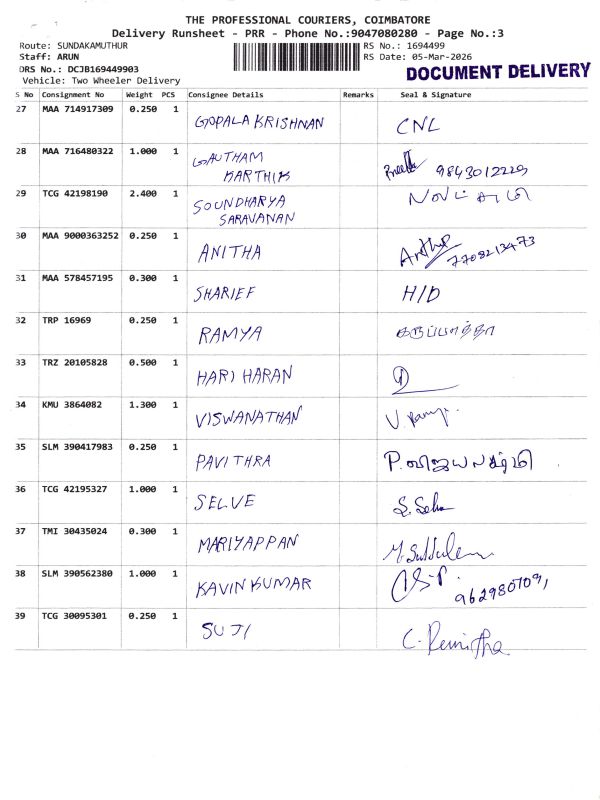 THE PROFESSIONAL COURIERS, COIMBATORE
Delivery Runsheet - PRR - Phone No.:9047080280 - Page No.:3
Route: SUNDAKAMUTHUR RS No.: 1694499
Staff: ARUN RS Date: 05-Mar-2026
DRS No.: DCJB169449903 DOCUMENT DELIVERY
Vehicle: Two Wheeler Delivery
S No Consignment No Weight PCS Consignee Details Remarks Seal & Signature
27 MAA 714917309 0.250 1 GOPALA KRISHNAN CNL
28 MAA 716480322 1.000 1 GAUTHAM
KARTHIK 9843012229
29 TCG 42198190 2.400 1 SOUNDHARYA
SARAVANAN
30 MAA 9000363252 0.250 1 ANITHA 7708213473
31 MAA 578457195 0.300 1 SHARIEF H/D
32 TRP 16969 0.250 1 RAMYA கருப்பாத்தா
33 TRZ 20105828 0.500 1 HARI HARAN
34 KMU 3864082 1.300 1 VISWANATHAN
35 SLM 390417983 0.250 1 PAVITHRA P. விஜயலக்ஷ்மி
36 TCG 42195327 1.000 1 SELVE
37 TMI 30435024 0.300 1 MARIYAPPAN
38 SLM 390562380 1.000 1 KAVIN KUMAR
39 TCG 30095301 0.250 1 SUJI